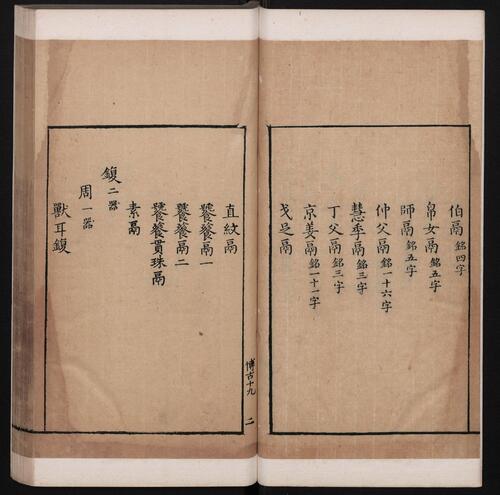 伯鬲銘四字
帛女鬲銘五字
師鬲銘五字
仲父鬲銘一十六字
慧季鬲銘三字
丁父鬲銘三字
京姜鬲銘一十一字
戈足鬲
直紋鬲
饕餮鬲一
饕餮鬲二
饕餮貫珠鬲
素鬲
鍑二器
周一器
獸耳鍑
博古十九 二